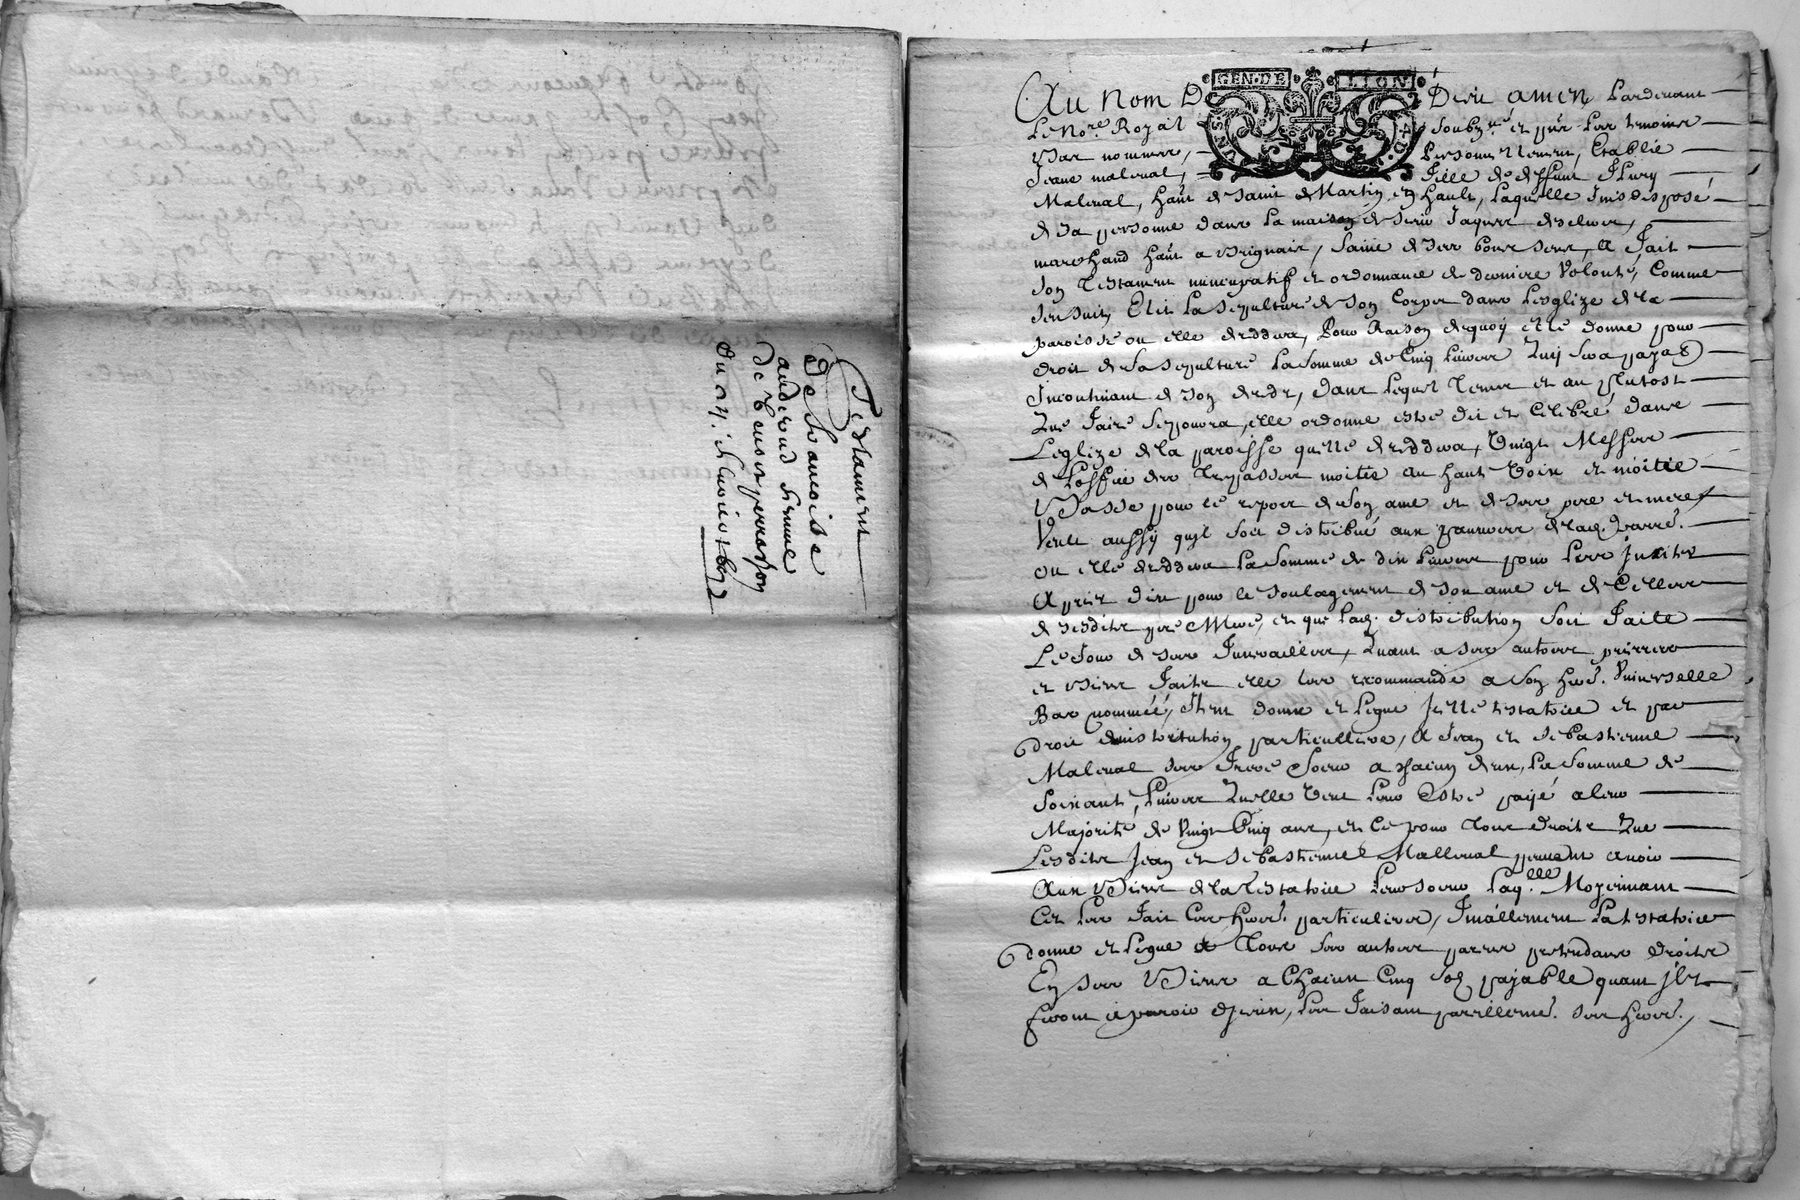 Testament
de francoise
audecoud femme
de benoist perrachon
du 21. fevrier 1692
GEN·DE LION
UNS · D.
Au nom De Dieu amen Pardevant
Le No.re Royal soubz.né et pñt Les temoins
Bas nommes, Personnellement Establie
Jeane maleval, fille de deffunt fleury
Maleval, hãnt de saint Martin en hault, laquelle
de sa personne dans la maison de sieur Jaques
marchand hãnt a Brignais, saine de ses bons sens, A fait
son Testament nuncupatif et ordonnance de derniere Volonté, Comme
sensuit, Elit La sepulture de son Corps dans Lesglize de la
paroisse ou elle deceddera, Pour Raison dequoy elle donne pour
droit de sa sepulture La somme de Cinq Livres Quy sera payab
Incontinant de son deceds, dans Lequel Temps et au plutost
Que faire se pourra, elle ordonne estre dit et Celebré dans
Leglize de la paroisse quelle deceddera, Vingt Messes
de Loffice des Trepasses moitie au haut Voix et moitie
Basse pour le repos de son ame et de ses pere et mere
Veult aussy quil soit distribué aux pauvres de lad. parr.
ou elle deceddera La somme de dix Livres pour Les Jnciter
A prier dieu pour le soulagement de son ame et de Celles
de sesdits pere Mere, et que lad. distribution soit faite
Le Jour de ses funerailles, Quant a ses autres prieres
et Biens faits elle les recommande a son her. Vniverselle
Bas nommée, Item donne et legue Jcelle testatrice et par
droit dinstitution particulliere, A Jean et sebastienne
Maleval ses frere soeur a chacun deux, La somme de
soixante Livres Quelle Veut Leur Estre payé a leur
Majorité de Vingt Cinq ans, et Ce pour Tous droits Que
Lesdits Jean et sebastienne Malleval peuvent avoir
Aux Biens de la Testatrice Leur soeur Laq.lle Moyennant
Ce Les fait Ces her. particuliers, finallement La testatrice
donne et legue a Tous ses autres parens pretendans droits
En ses Biens a Chacun Cinq sols payable quant Jls
feront aparoir diceux, Les faisant pareillemt. ses her.